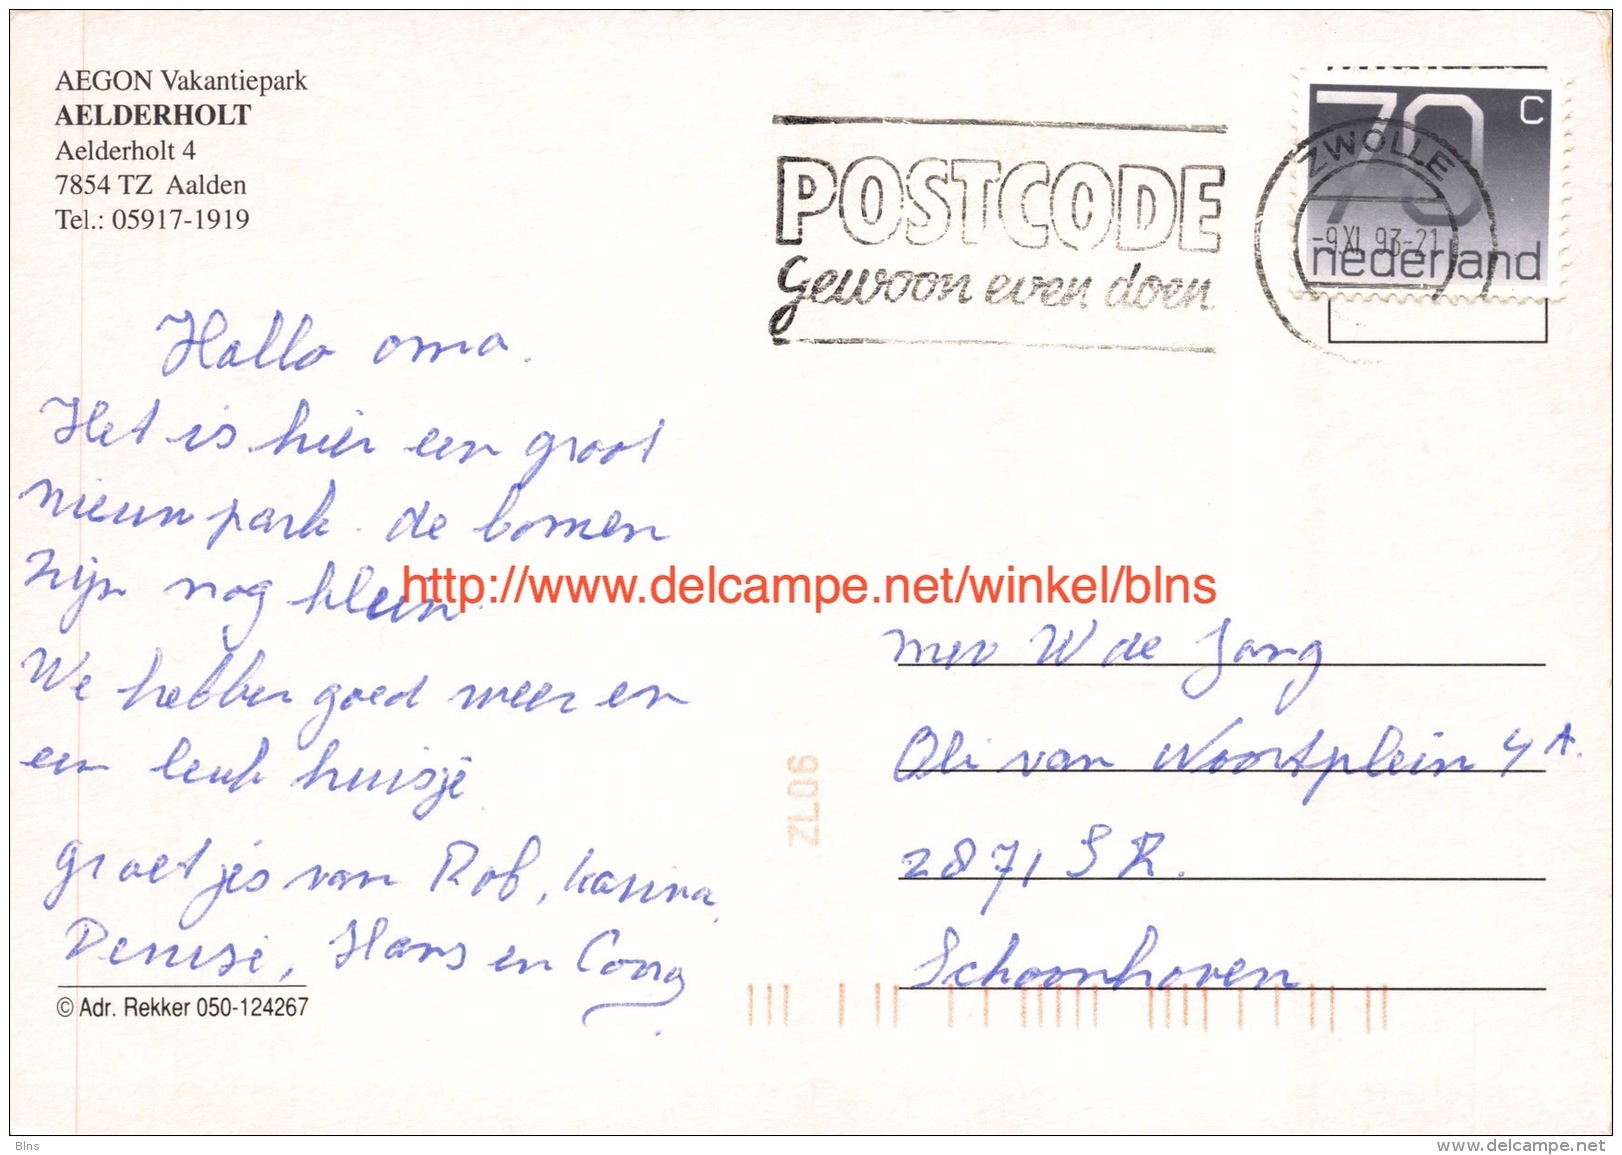 AEGON Vakantiepark
AELDERHOLT
Aelderholt 4
7854 TZ Aalden
Tel.: 05917-1919
POSTCODE
gewoon even doen
70 c
nederland
ZWOLLE
-9.XI.93-21
Hallo oma.
Het is hier een groot
nieuw park. de bomen
zijn nog klein.
We hebben goed weer en
een leuk huisje.
groetjes van Rob, Karina,
Denise, Hans en Corry
© Adr. Rekker 050-124267
http://www.delcampe.net/winkel/blns
mev W de Jong
Oli van Noortplein 4 A.
2871 SR.
Schoonhoven
ZL06
Blns
www.delcampe.net